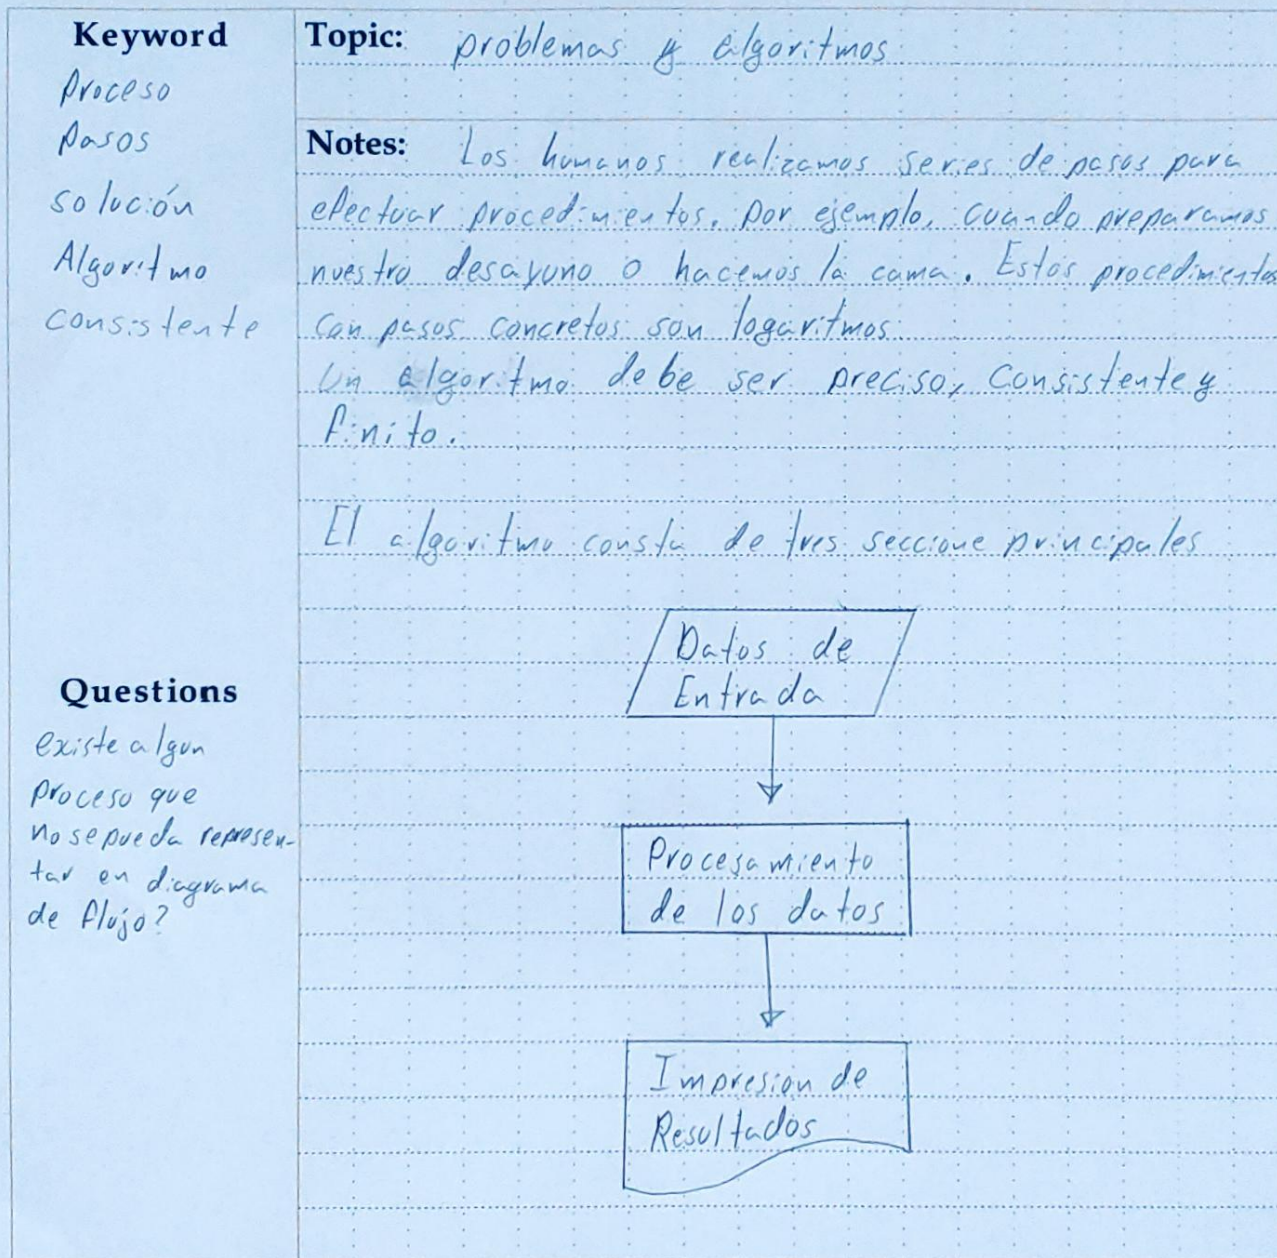 Keyword
Proceso
Pasos
solución
Algoritmo
consistente
Questions
existe algun
proceso que
no se pueda represen-
tar en diagrama
de flujo?
Topic: problemas y algoritmos
Notes: Los humanos realizamos series de pasos para
efectuar procedimientos. Por ejemplo, cuando preparamos
nuestro desayuno o hacemos la cama. Estos procedimientos
con pasos concretos son logaritmos
Un algoritmo debe ser preciso, consistente y
finito.
El algoritmo consta de tres seccione principales
Datos de
Entrada
Procesamiento
de los datos
Impresion de
Resultados